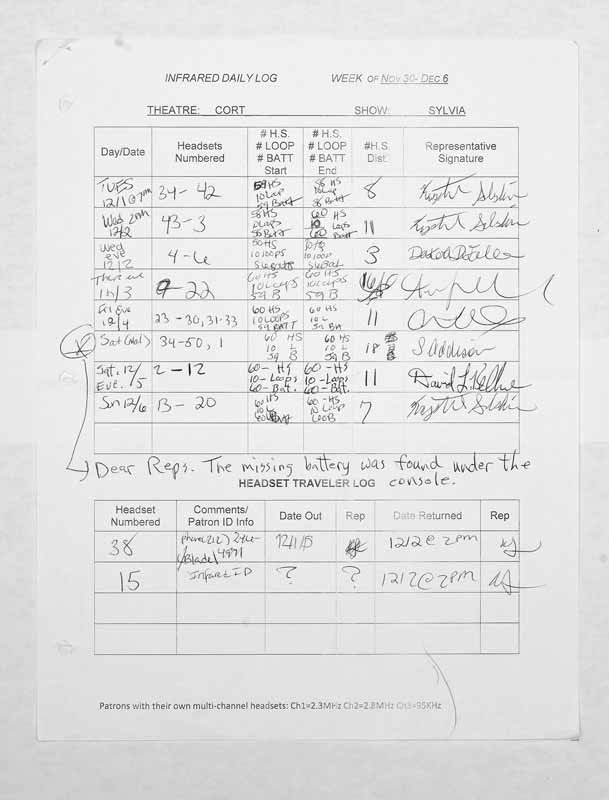 INFRARED DAILY LOG WEEK OF NOV 30- DEC 6
THEATRE: CORT SHOW: SYLVIA
Day/Date Headsets Numbered # H.S. # LOOP # BATT Start # H.S. # LOOP # BATT End #H.S. Dist. Representative Signature
TUES 12/1 @ 7pm 34 - 42 59 HS 10 Loop 59 Batt 58 HS 10 Loop 8
Wed 2pm 12/2 43 - 3 58 HS 58 Batt 60 HS 10 Loops 60 Batt 11
Wed eve 12/2 4 - 6 10 loops 3
9 - 22 60 HS 10 Loops 59 B 60 HS 10 Loops 59 B
Fri Eve 12/4 23 - 30, 31-33 60 HS 10 LOOPS 59 BATT 60 HS 10 L 59 Bat 11
Sat (Mat) 34 - 50, 1 60 HS 10 L 59 B 60 HS 10 L 59 B 18 S Addison
Sat. 12/5 Eve. 2 - 12 60 - HS 10 - Loops 60 - Bat. 60 - HS 10 - Loops 60 - Bat. 11
Sun 12/6 13 - 20 60 HS 10 L 60 - HS 10 Loop 7
Dear Reps. The missing battery was found under the
HEADSET TRAVELER LOG console.
Headset Numbered Comments/ Patron ID Info Date Out Rep Date Returned Rep
38 12/1/15 12/2 @ 2pm
15 Infrared ID ? ? 12/2 @ 2pm
Patrons with their own multi-channel headsets: Ch1=2.3MHz Ch2=2.8MHz Ch3=95KHz